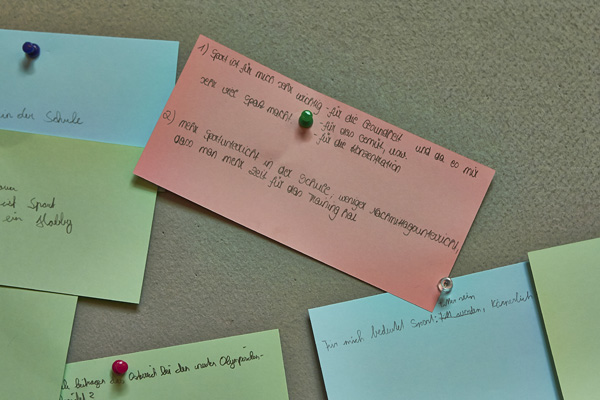 in der Schule
ist Sport
ein Hobby
1) Sport ist für mich sehr wichtig - für die Gesundheit und da es mir
sehr viel Spaß macht! - für das Gemüt, usw.
- für die Konzentration
2) mehr Sportunterricht in der Schule, weniger Nachmittagsunterricht,
dass man mehr Zeit für das Training hat
Für mich bedeutet Sport: fit werden, Körperlich
Österreich bei den